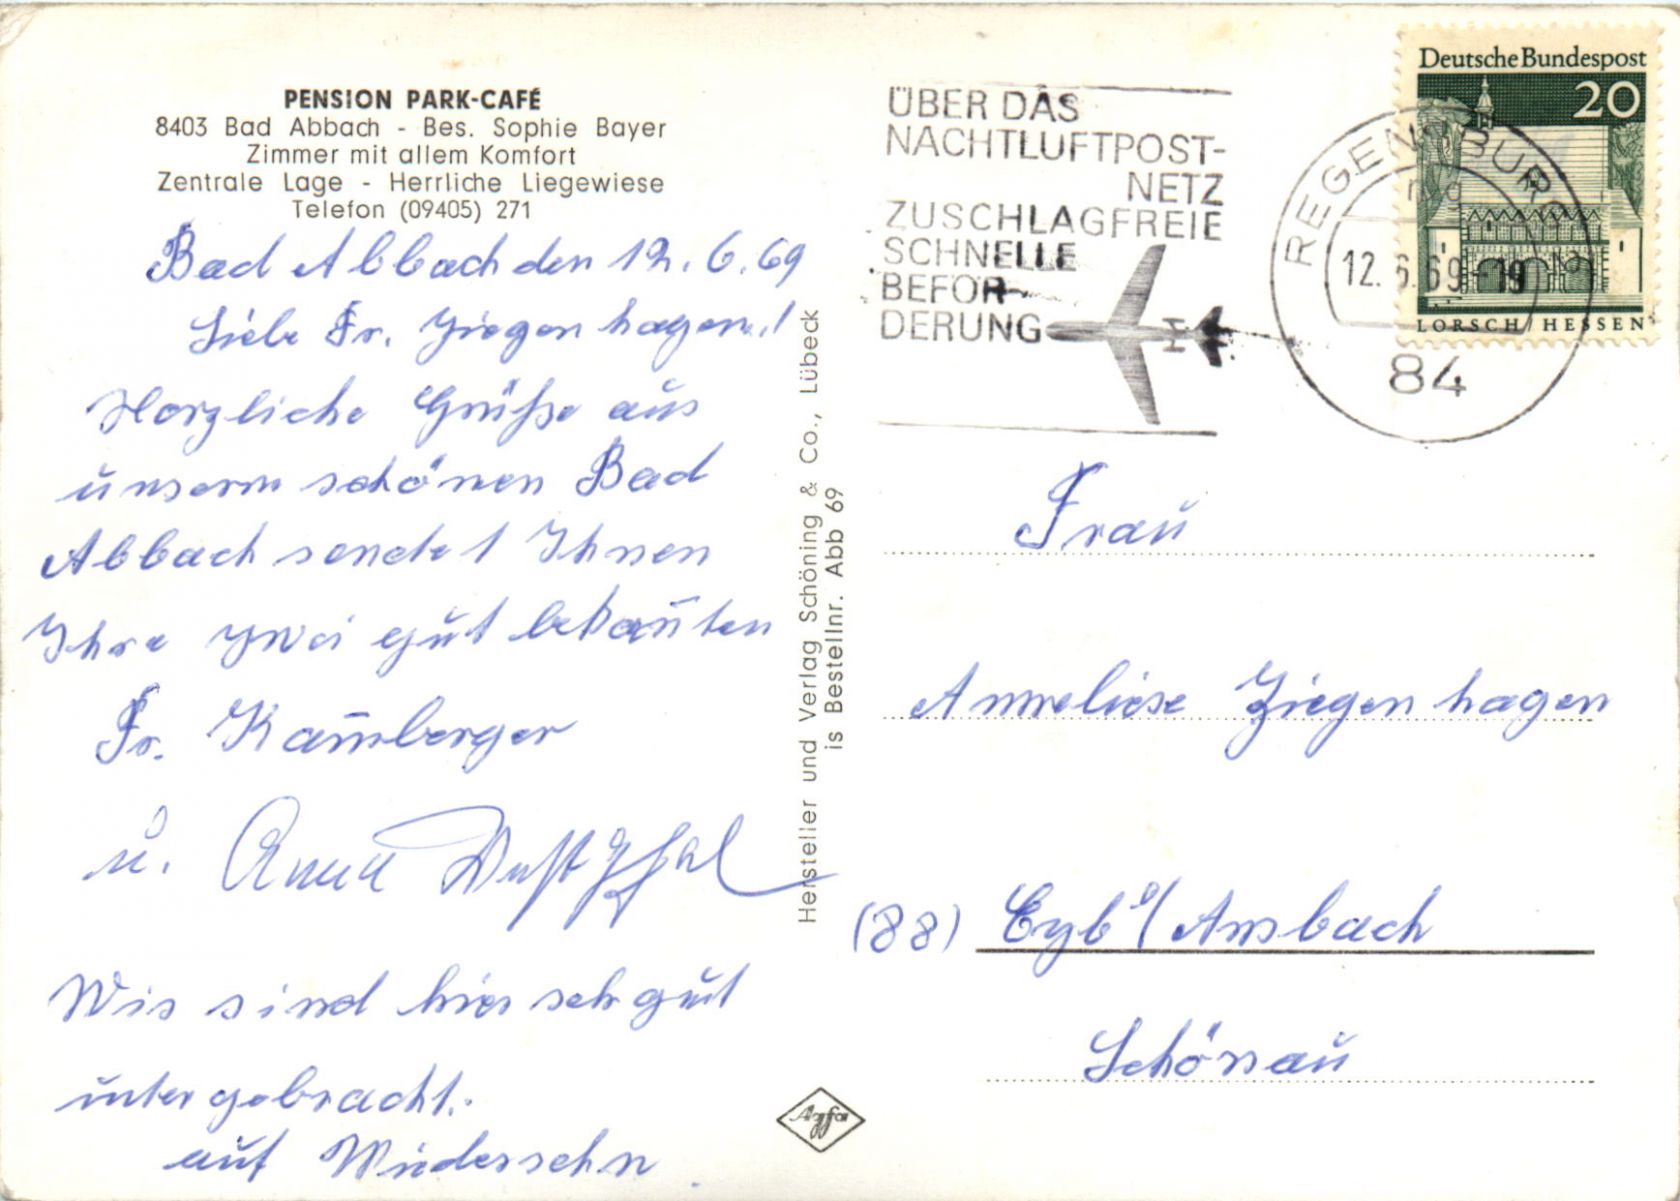 PENSION PARK-CAFÉ
8403 Bad Abbach - Bes. Sophie Bayer
Zimmer mit allem Komfort
Zentrale Lage - Herrliche Liegewiese
Telefon (09405) 271
Bad Abbach den 12.6.69
Liebe Fr. Ziegenhagen!
Herzliche Grüße aus
unserm schönen Bad
Abbach sendet Ihnen
Ihre zwei gut bekan̄ten
Fr. Kam̄berger
u. Anna
Wir sind hier sehr gut
untergebracht.
auf Wiedersehn
Hersteller und Verlag Schöning & Co., Lübeck
is Bestellnr. Abb 69
Agfa
ÜBER DAS
NACHTLUFTPOST-
NETZ
ZUSCHLAGFREIE
SCHNELLE
BEFÖR-
DERUNG
REGENSBURG 2
12.6.69-19
84
Deutsche Bundespost
20
LORSCH/HESSEN
Frau
Anneliese Ziegenhagen
(88) Eyb b/Ansbach
Schönau